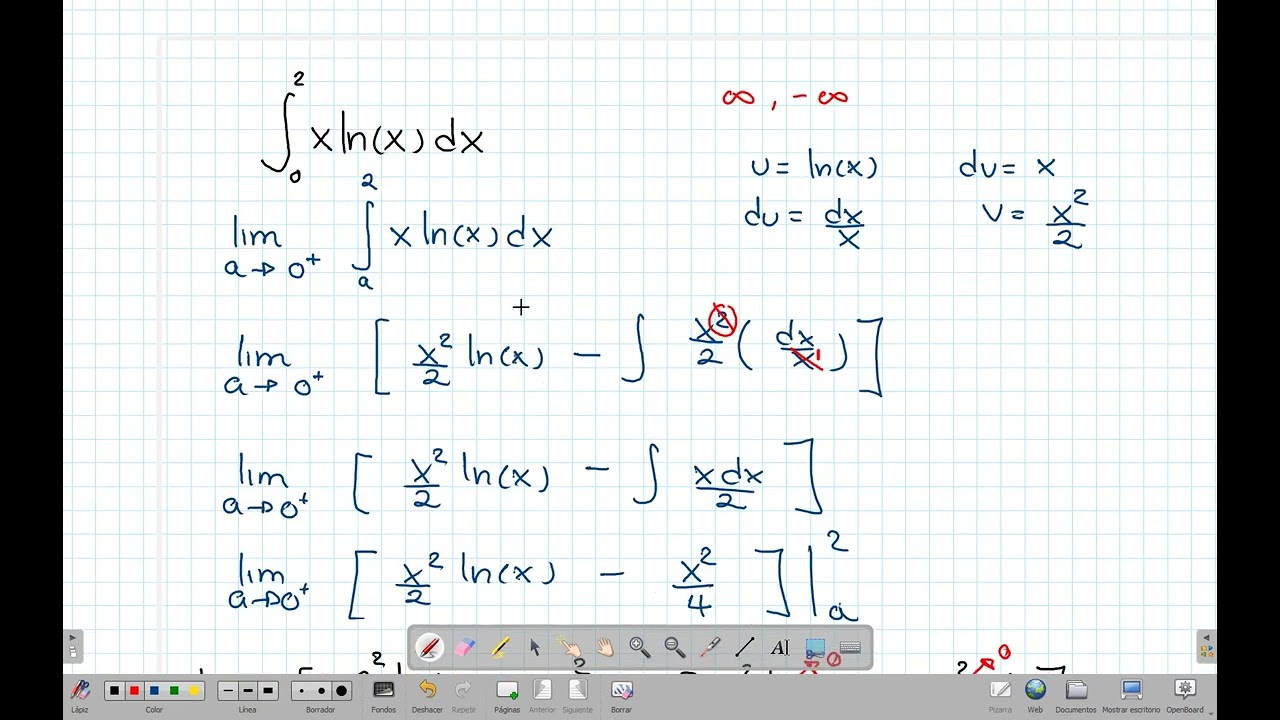 ∫₀² x ln(x) dx
∞, -∞
u = ln(x)   dv = x
du = dx/x   v = x²/2
lim a→0⁺ ∫ₐ² x ln(x) dx
lim a→0⁺ [ x²/2 ln(x) - ∫ x²/2 ( dx/x¹ ) ]
lim a→0⁺ [ x²/2 ln(x) - ∫ x dx/2 ]
lim a→0⁺ [ x²/2 ln(x) - x²/4 ] |ₐ²
AI
Lápiz
Color
Línea
Borrador
Fondos
Deshacer
Repetir
Páginas
Anterior
Siguiente
Borrar
Pizarra
Web
Documentos
Mostrar escritorio
OpenBoard